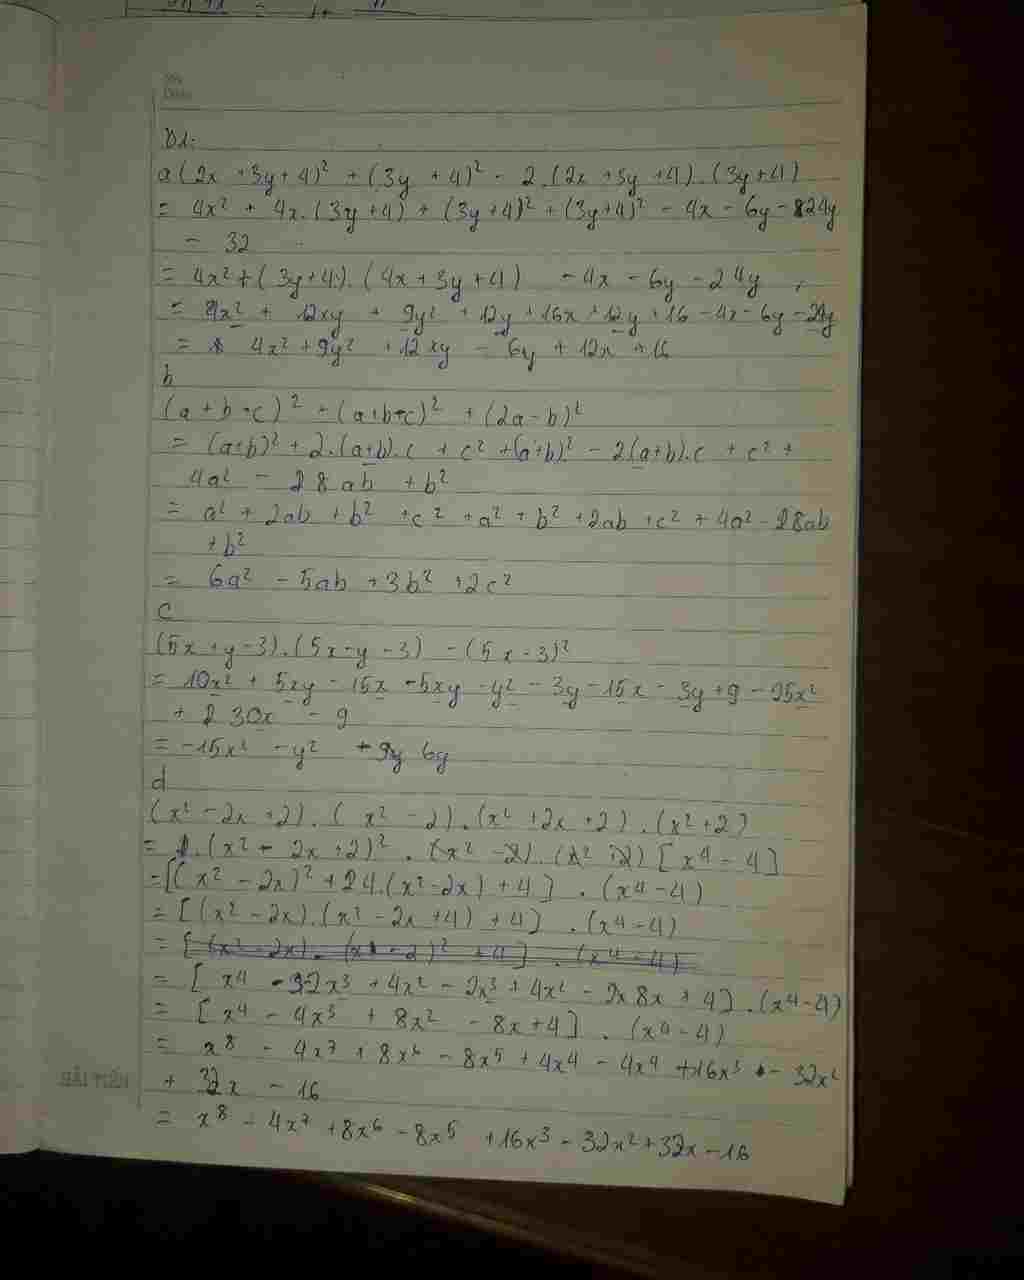 a (2x + 3y + 4)² + (3y + 4)² - 2.(2x + 3y + 4).(3y + 4)
= 4x² + 4x.(3y + 4) + (3y + 4)² + (3y + 4)² - 4x - 6y - 24y
- 32
= 4x² + (3y + 4).(4x + 3y + 4) - 4x - 6y - 24y
= 4x² + 12xy + 9y² + 12y + 16x + 12y + 16 - 4x - 6y - 24y
= 4x² + 9y² + 12xy - 6y + 12x + 16
b
(a + b + c)² + (a + b - c)² + (2a - b)²
= (a+b)² + 2.(a+b).c + c² + (a+b)² - 2(a+b).c + c² +
4a² - 8ab + b²
= a² + 2ab + b² + c² + a² + b² + 2ab + c² + 4a² - 8ab
+ b²
= 6a² - 5ab + 3b² + 2c²
c
(5x + y - 3).(5x - y - 3) - (5x - 3)²
= 10x² + 5xy - 15x - 5xy - y² - 3y - 15x - 3y + 9 - 25x²
+ 30x - 9
= -15x² - y² 6y
d
(x² - 2x + 2).(x² - 2).(x² + 2x + 2).(x² + 2)
= (x² - 2x + 2)² . [x⁴ - 4]
= [(x² - 2x)² + 4.(x² - 2x) + 4] . (x⁴ - 4)
= [(x² - 2x).(x² - 2x + 4) + 4] . (x⁴ - 4)
= [x⁴ - 2x³ + 4x² - 2x³ + 4x² - 8x + 4].(x⁴ - 4)
= [x⁴ - 4x³ + 8x² - 8x + 4] . (x⁴ - 4)
= x⁸ - 4x⁷ + 8x⁶ - 8x⁵ + 4x⁴ - 4x⁴ + 16x³ - 32x²
+ 32x - 16
= x⁸ - 4x⁷ + 8x⁶ - 8x⁵ + 16x³ - 32x² + 32x - 16